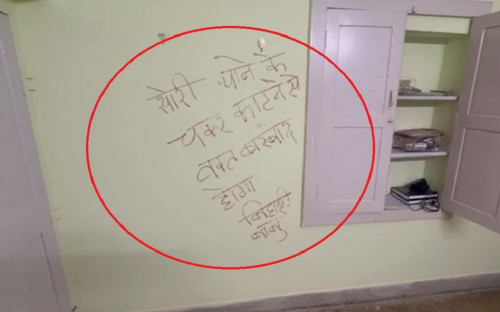 सोरी थोने के
चकर काटने से
वक्त बरबाद
होगा
बिहारी
बाबु